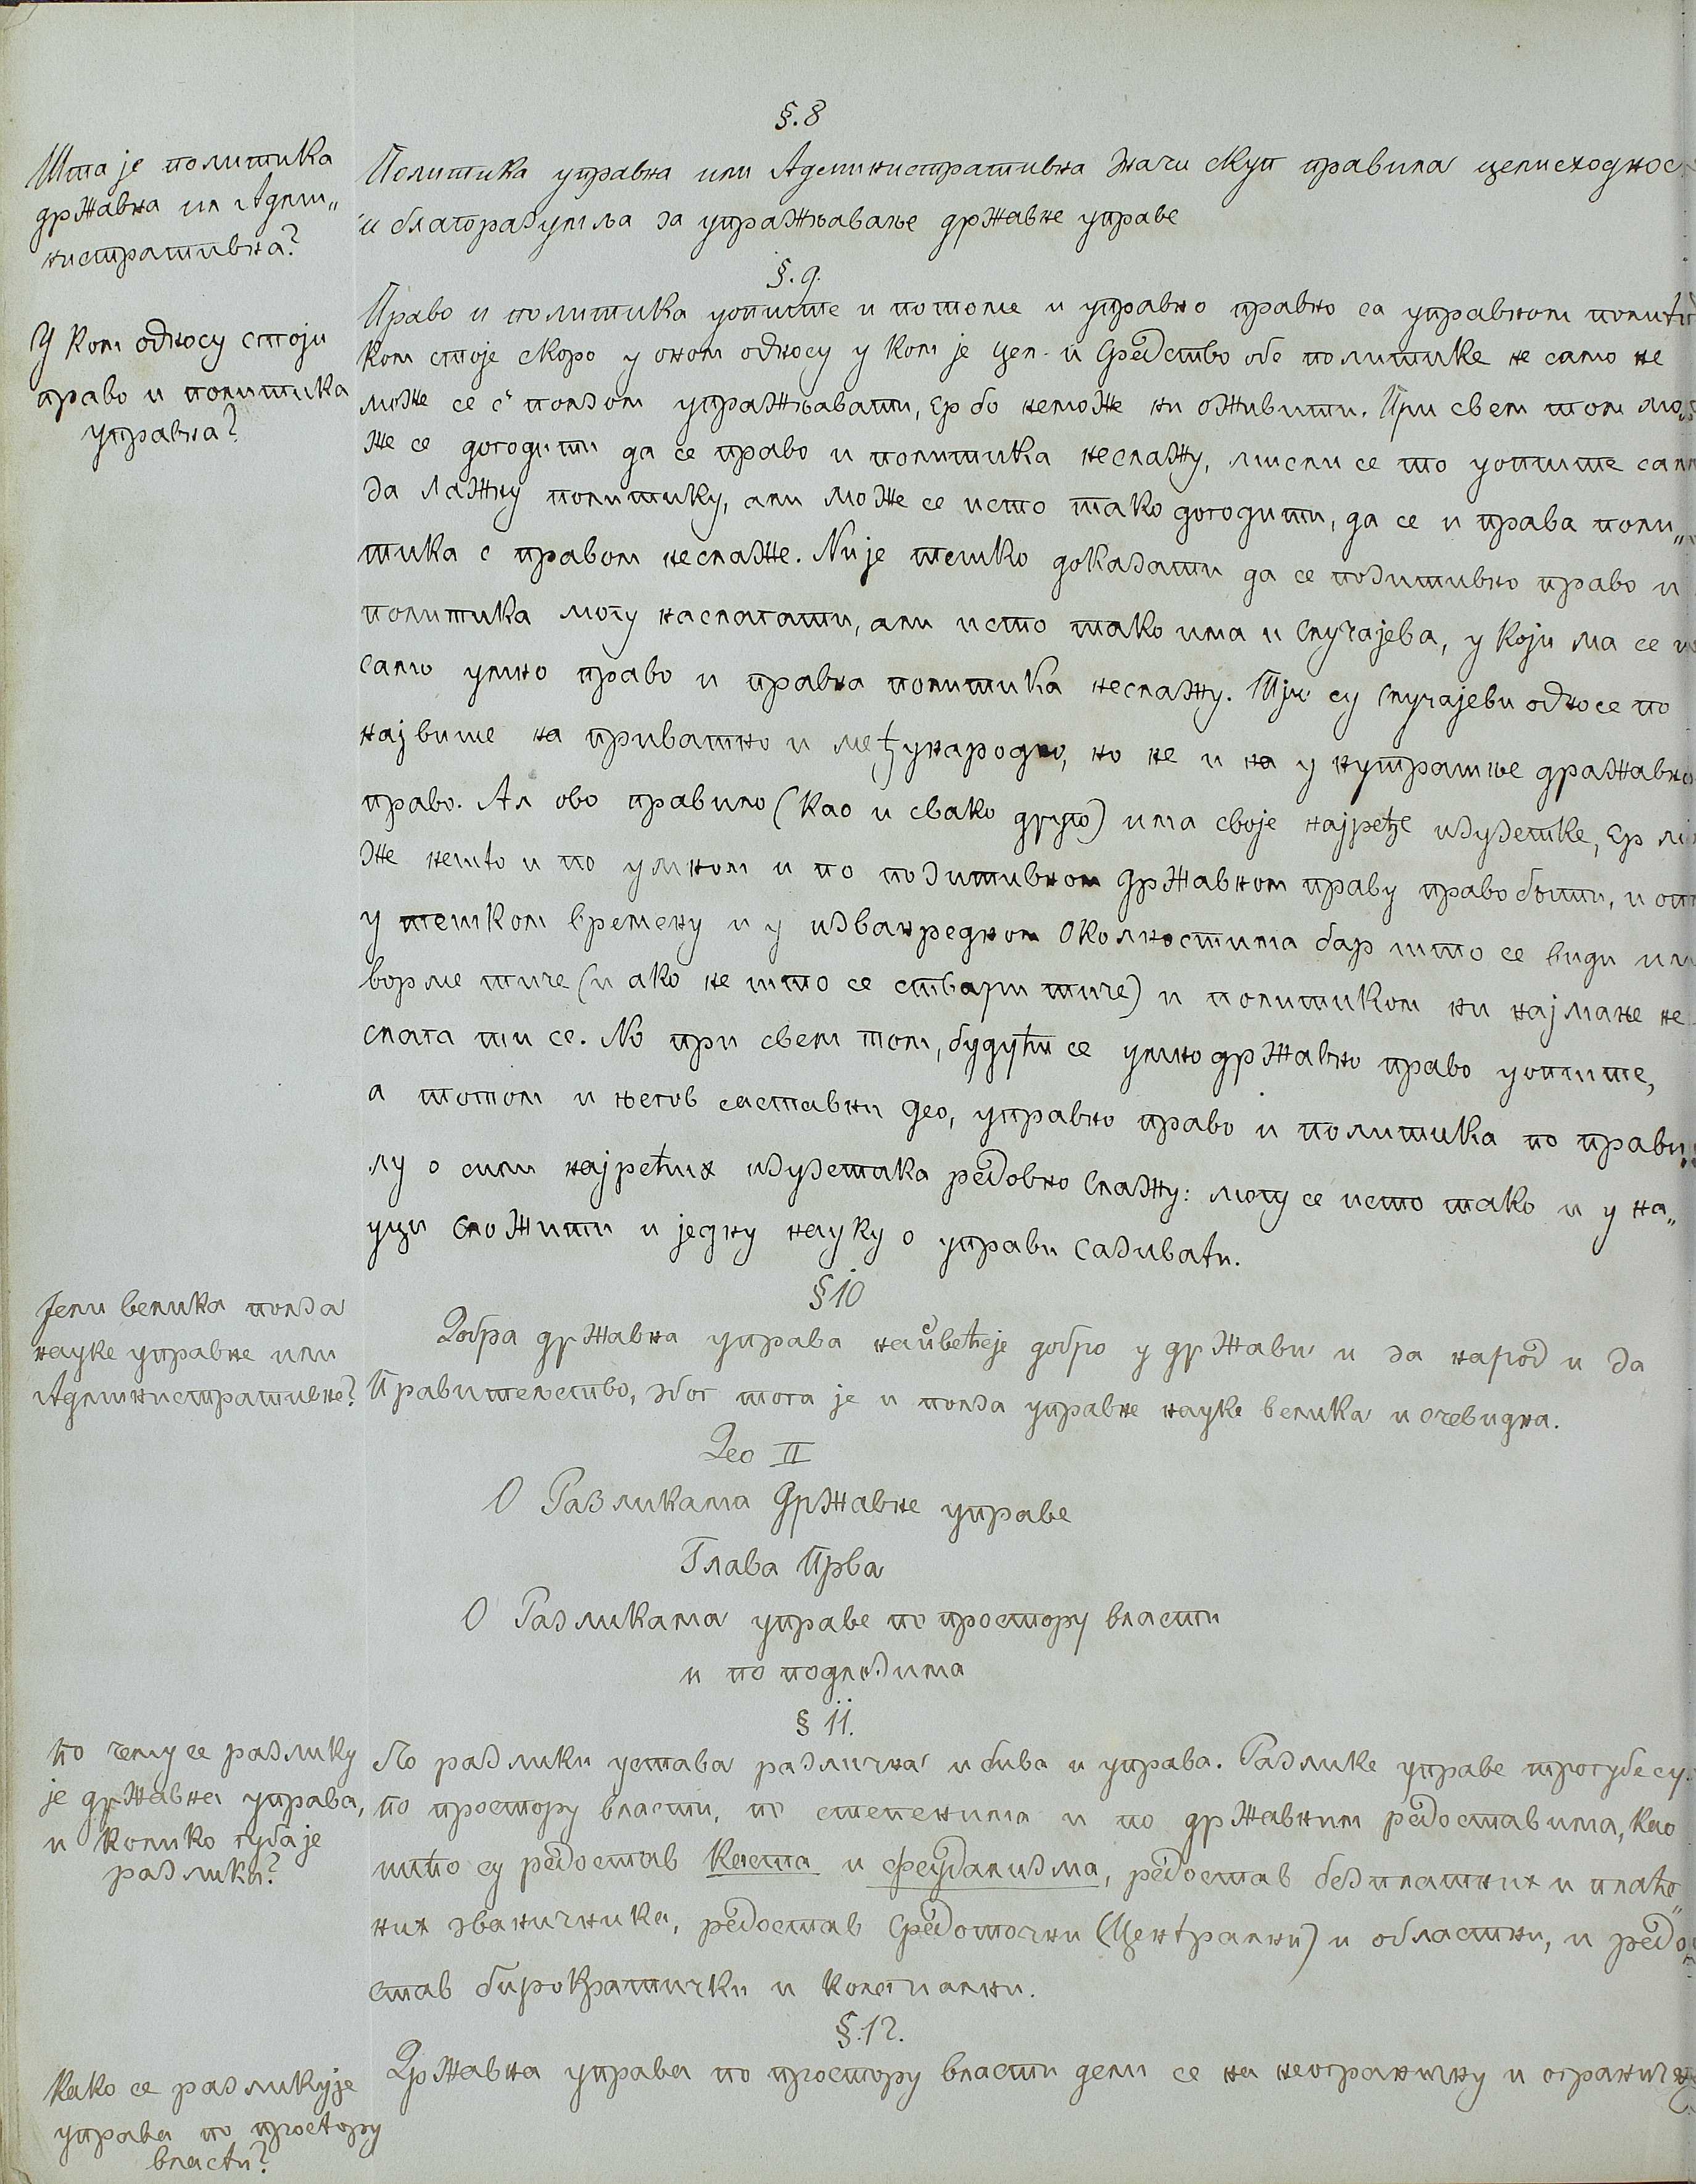 §.8
Шта је политика
државна ил Адми„
нистративна?
Политика управна или Административна значи скуп правила целисходнос
и благоразумља за упражњавање државне управе
§.9.
У ком односу стоји
право и политика
управна?
Право и политика уопште и потоме и управно правно са управном полити
ком стоје скоро у оном односу у ком је цел и Средство обе политике не само не
може се с ползом упражњавати, Ер бо неможе ни оживити. При свем том мо„
же се догодити да се право и политика неслажу, мисли се то уопште сам
за лажну политику, али може се исто тако догодити, да се и права поли„
тика с правом неслаже. Није тешко доказати да се позитивно право и
политика могу наслагати, али исто тако има и Случајева, у који ма се и
само умно право и правна политика неслажу. Три су Случајеви односе по
највише на приватно и међународно, но не и на у нутрашње дражавно
право. Ал ово правило (као и свако друго) има своје најређе изузетке, Ер мо
же нешто и по умном и по позитивном државном праву право бити, и опт
у тешком времену и у изванредном Околностима бар што се види или
ворме тиче (и ако не што се ствари тиче) и политиком ни најмање не
слага ти се. No при свем том, будући се умно државно право уопште,
а тотом и његов саставни део, управно право и политика по прави„
лу о сили најређих изузетака редовно Слажу: могу се исто тако и у на„
уци Сложити и једну науку о управи сазивати.
§ 10
Јели велика полза
науке управне или
Административне?
Добра државна управа највећеје добро у држави и за народ и за
Правителство, због тога је и полза управне науке велика и очевидна.
Део II
О Разликама Државне управе
Глава Прва
О Разликама управе по простору власти
и по подлозима
§ 11.
По чему се разлику
је државна управа,
и колико губа је
разлика?
По разлики устава различна и бива и управа. Разлике управе трогубе су:
по простору власти, по степенима и по државним редоставима, као
што су редостав каста и феудализма, редостав безплатних и плаће„
них званичника, редостав Средоточни (Централни) и областни, и редо„
став бирократички и колегиални.
§.12.
Како се разликује
управа по простору
власти?
Државна управа по простору власти дели се на неограничну и огранич